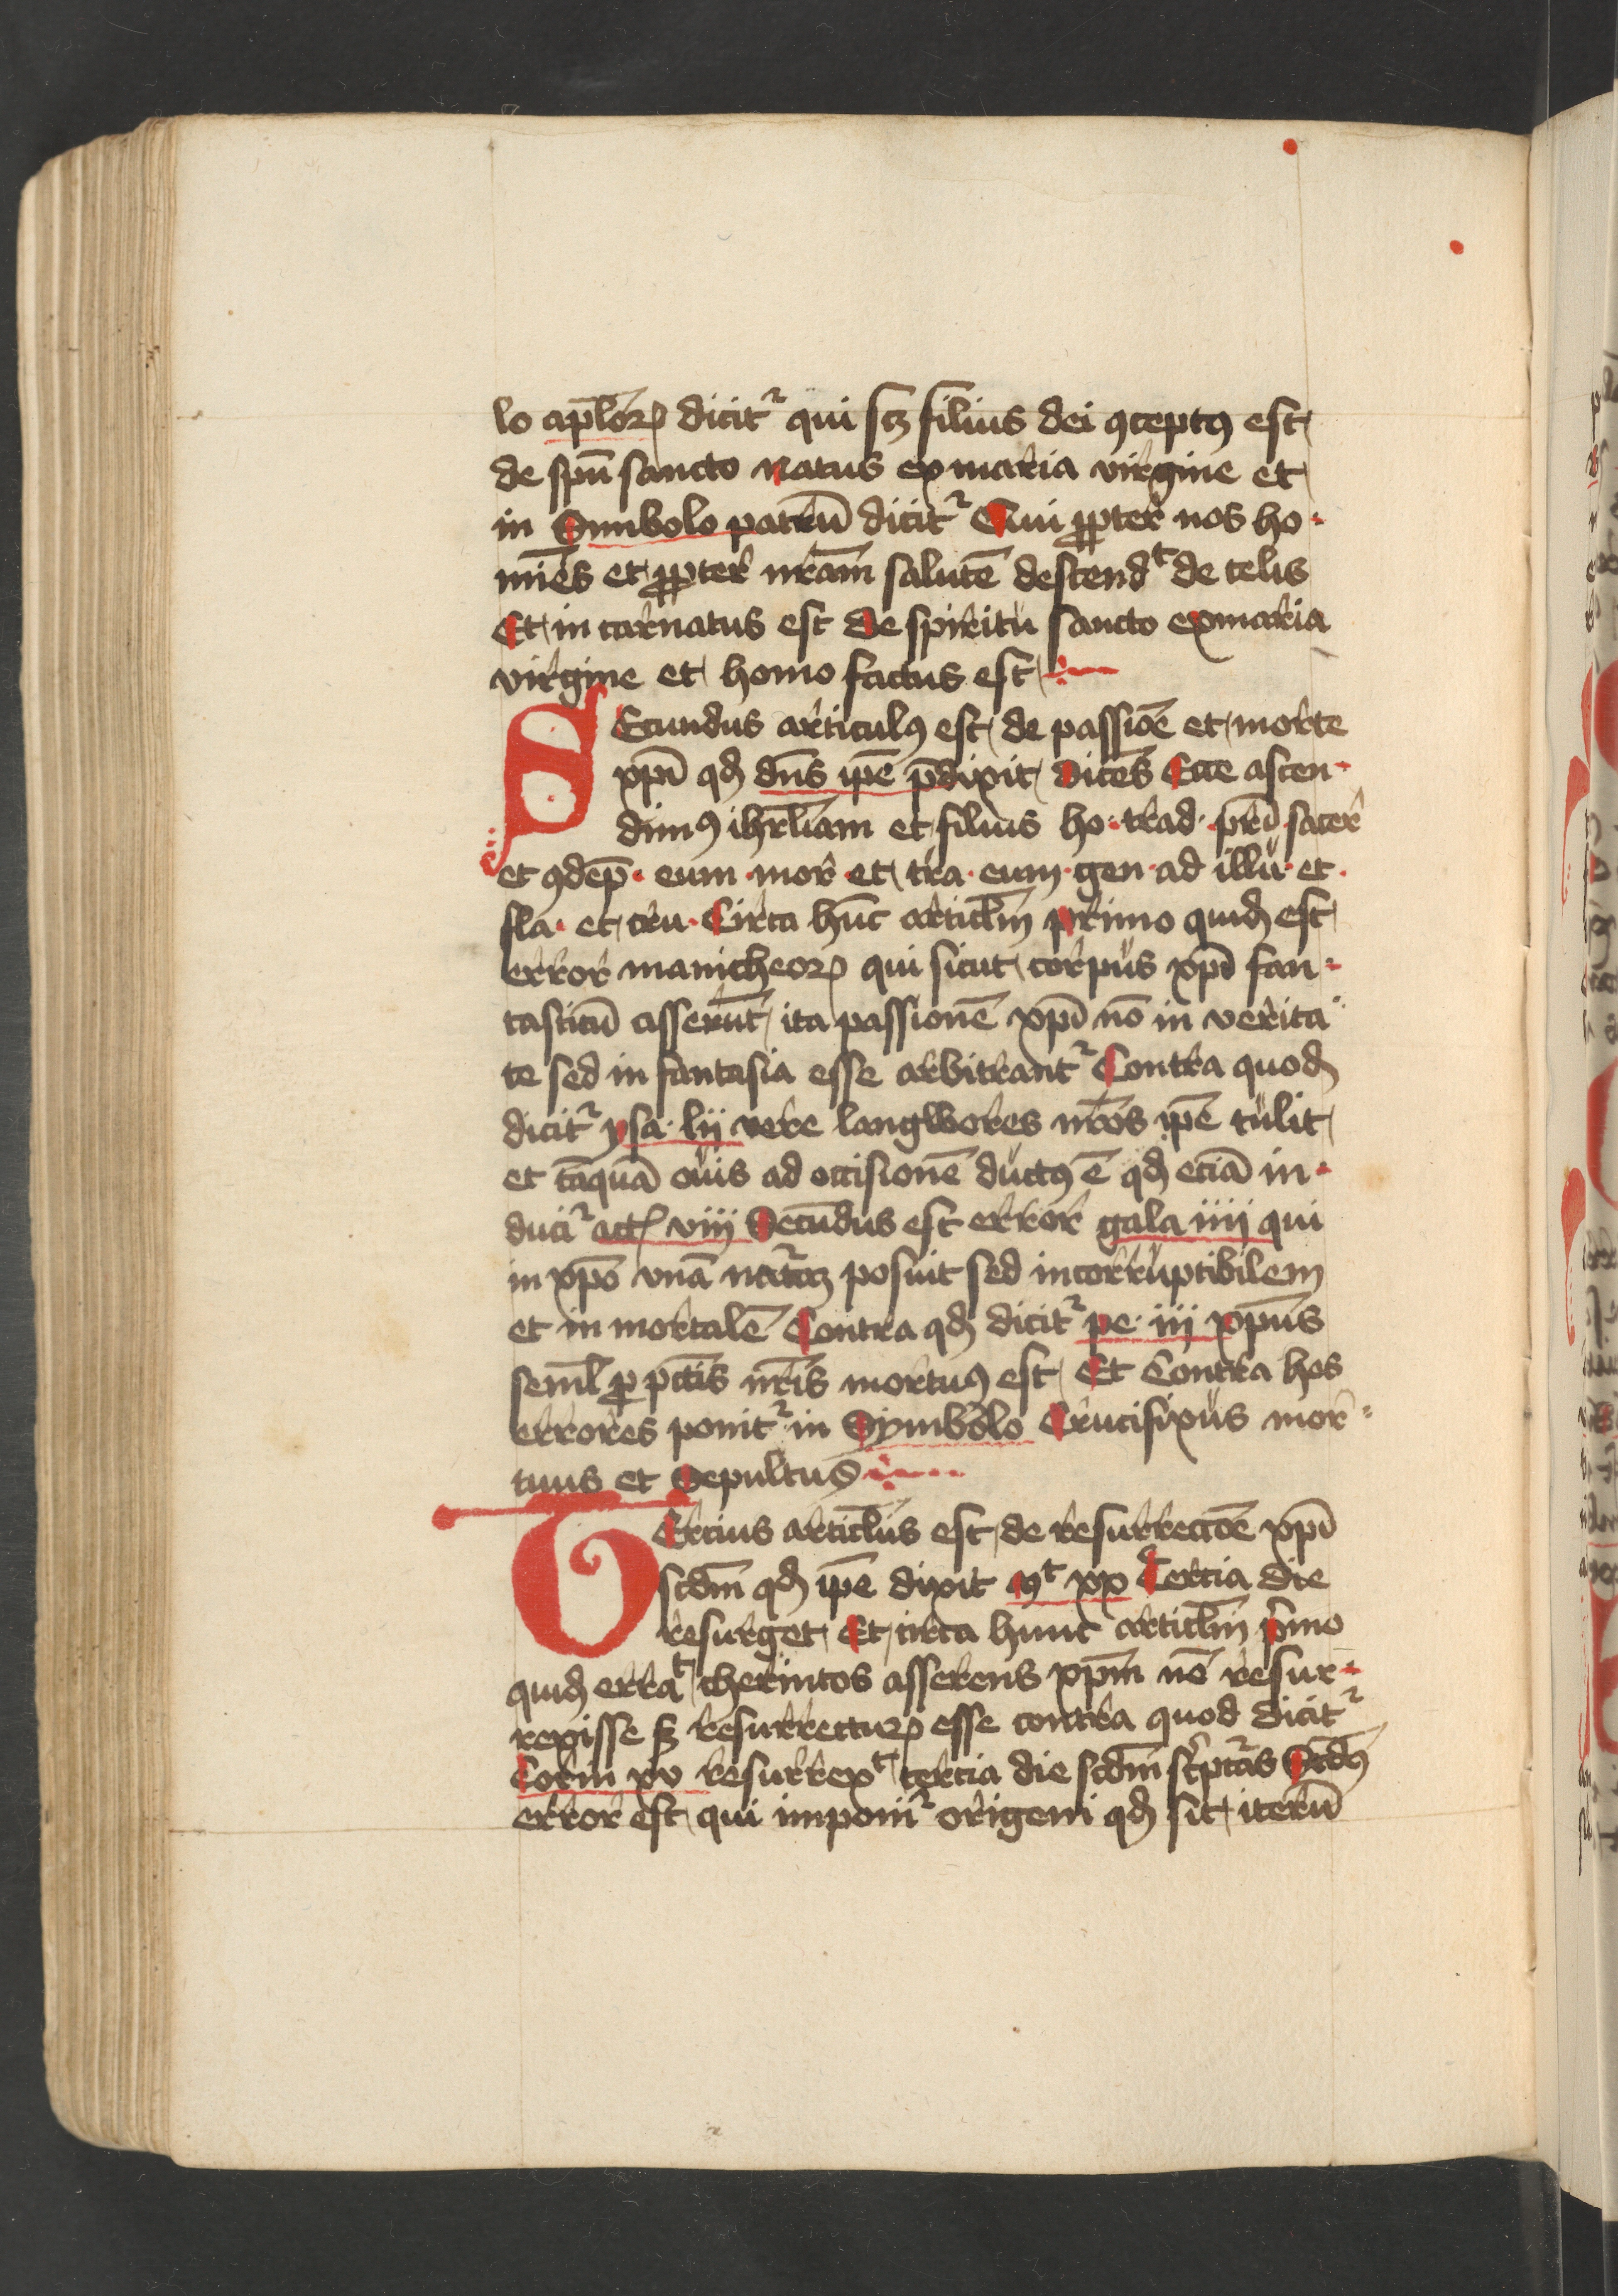 lo apl̄oꝝ dicitr qui scꝫ filius dei ꝯceptꝰ est
de spū sancto natus ex maria virgine et
in Simbolo patrū dicitr Qui ꝓpter nos ho
mi̅es et ꝓpter nr̄am salutē descendt de celis
Et in carnatus est de spiritu sancto ex maria
virgine et homo factus est
SEcundus articulꝰ est de passiōe et morte
xp̄i qđ dn̄s ip̄e p̄dixit dicēs Ecce ascen
dimꝰ ihrl̄iam et filius ho · trad · prī sacer
et ꝯdēp · eum · mor et tra · eum · gen · ad illu · et ·
fla · et cru · Circa hūc articl̄m primo quiđ est
error manicheoꝝ qui sicut corpus xp̄i fan
tasticū asserūt ita passionē xp̄i nō in verita
te sed in fantasia esse arbitrantr Contra quođ
dicitr ysa · lii vere langwores nr̄os ip̄e tulit
et tāquā ouis ad occisionē ductꝰ ē qđ eciā in
ducir actꝭ viij Secundus est error gala iiij qui
in xp̄o vnā natūaꝫ posuit sed incorruptibilem
et in mortalē Contra qđ dicitr pe · iij xp̄us
seml̄ ꝓ pctīs nr̄is mortuꝰ est Et Contra hos
errores ponitr in Symbolo Crucifixus mor
tuus et Sepultus
TErcius articl̄us est de resurrectōe xp̄i
scdm̄ qđ ip̄e dixit Mt xx Tercia die
resurget Et circa hunc articl̄m pimo
quiđ errat cherintos asserens xp̄m nō resur
rexisse sꝫ resurrecturꝝ esse contra quod dicitr
Corin xv resurrext tercia die scdm̄ scripturās Scdꝰ
error est qui imponir origeni qđ sit iterū